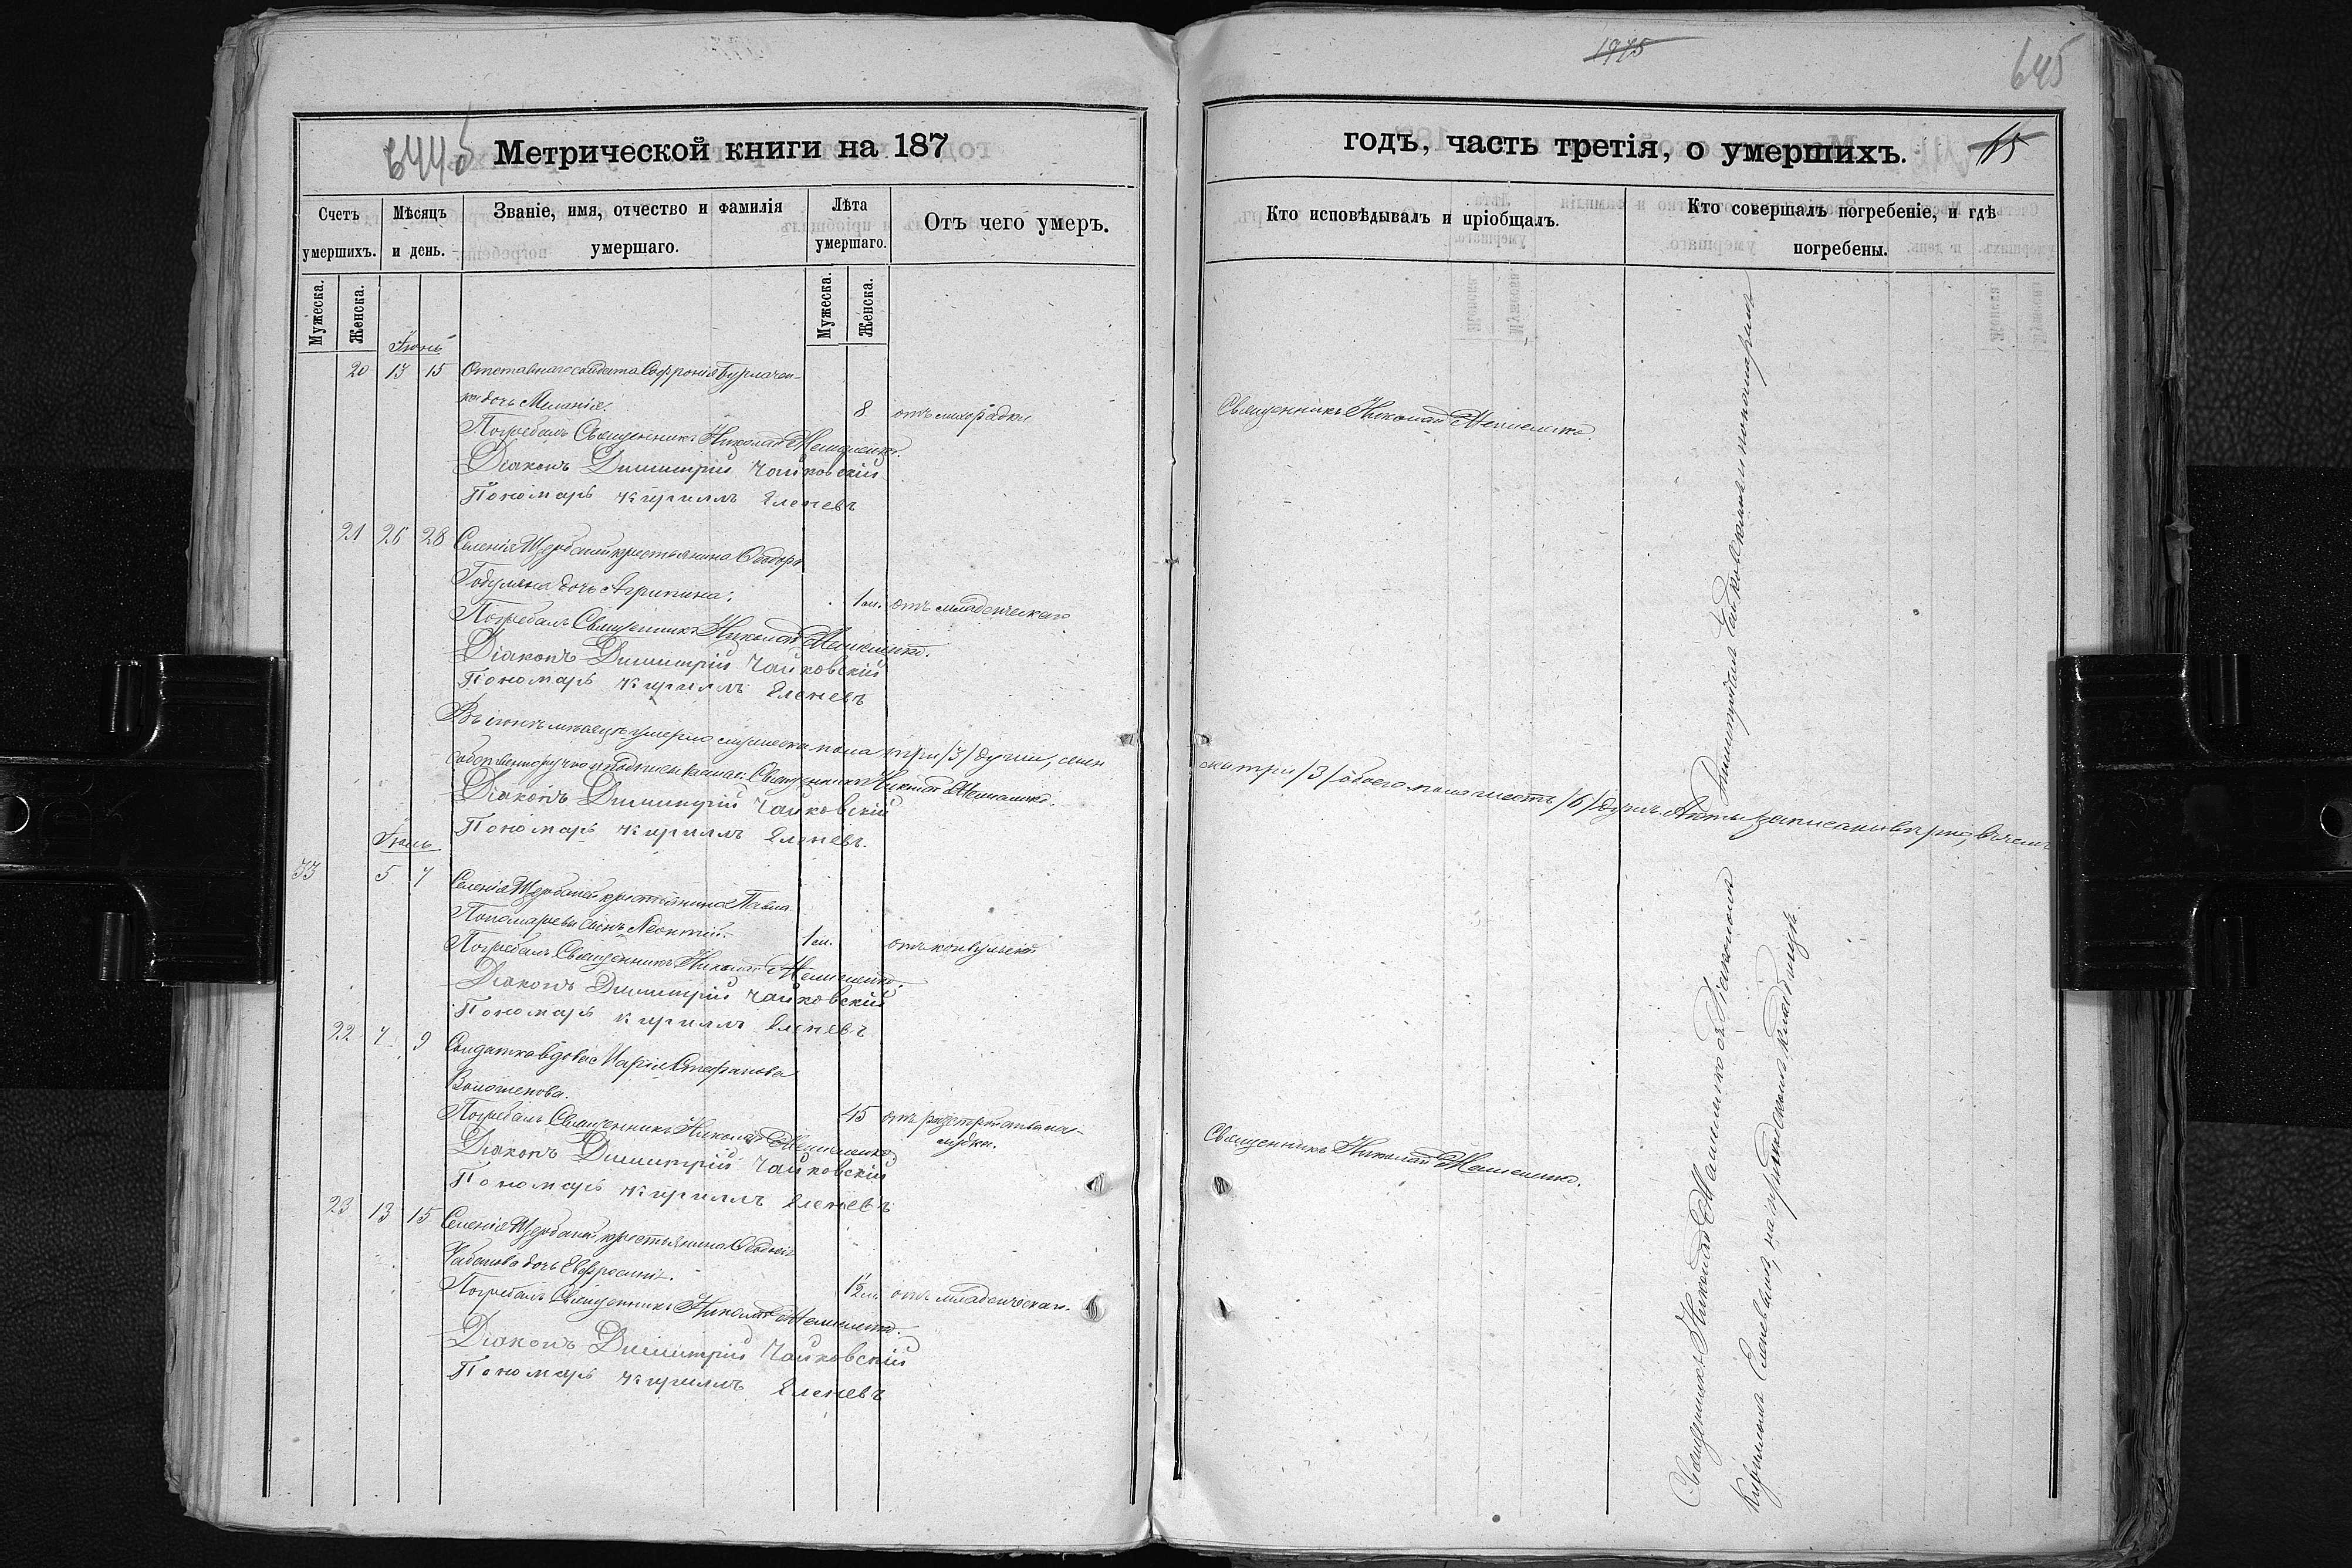 1975
645
644 б
Метрической книги на 187
годъ, часть третія, о умершихъ.
65
Счетъ умершихъ.
Мѣсяцъ и день.
Званіе, имя, отчество и фамилія умершаго.
Лѣта умершаго.
Отъ чего умеръ.
Кто исповѣдывалъ и пріобщалъ.
Кто совершалъ погребеніе, и гдѣ погребены.
Мужеска.
Женска.
Мужеска.
Женска.
Іюнь
20 13 15 Отставнаго солдата Софронія Бурлачен-
ка дочь Меланія. 8 отъ лихорадки
Священникъ Николай
Погребалъ Священникъ Николай
Діаконъ Димитрій Чайковскій
Пономарь Кириллъ Еленевъ
21 26 28 Селенія Щербаней крестьянина Ѳеодора
дочь Агрипина. 1 м. отъ младенческаго
Погребалъ Священникъ Николай
Діаконъ Димитрій Чайковскій
Пономарь Кириллъ Еленевъ
Въ іюнѣ мѣсяцѣ умерло мужеска пола три /3/ души, женска три /3/ обоего пола шесть /6/ душъ. Акты записаны вѣрно, въ чемъ
собственноручно и подписываемся: Священникъ Николай
Діаконъ Димитрій Чайковскій
Пономарь Кириллъ Еленевъ.
Іюль
33 5 7 Селенія Щербаней крестьянина Павла
Пономарева сынъ Леонтій. 1 м. отъ конвульсій
Погребалъ Священникъ Николай
Діаконъ Димитрій Чайковскій
Пономарь Кириллъ Еленевъ
22 7 9 Солдатка вдова Марія Стефанова
45 отъ разстройства же-
лудка.
Священникъ Николай
Погребалъ Священникъ Николай
Діаконъ Димитрій Чайковскій
Пономарь Кириллъ Еленевъ
23 13 15 Селенія Щербаней крестьянина
дочь Евфросинія. 1/2 м. отъ младенческаго.
Погребалъ Священникъ Николай
Діаконъ Димитрій Чайковскій
Пономарь Кириллъ Еленевъ
Священникъ Николай съ Діакономъ Димитріемъ Чайковскимъ и пономаремъ
Кирилломъ Еленевымъ, на приходскомъ кладбищѣ.